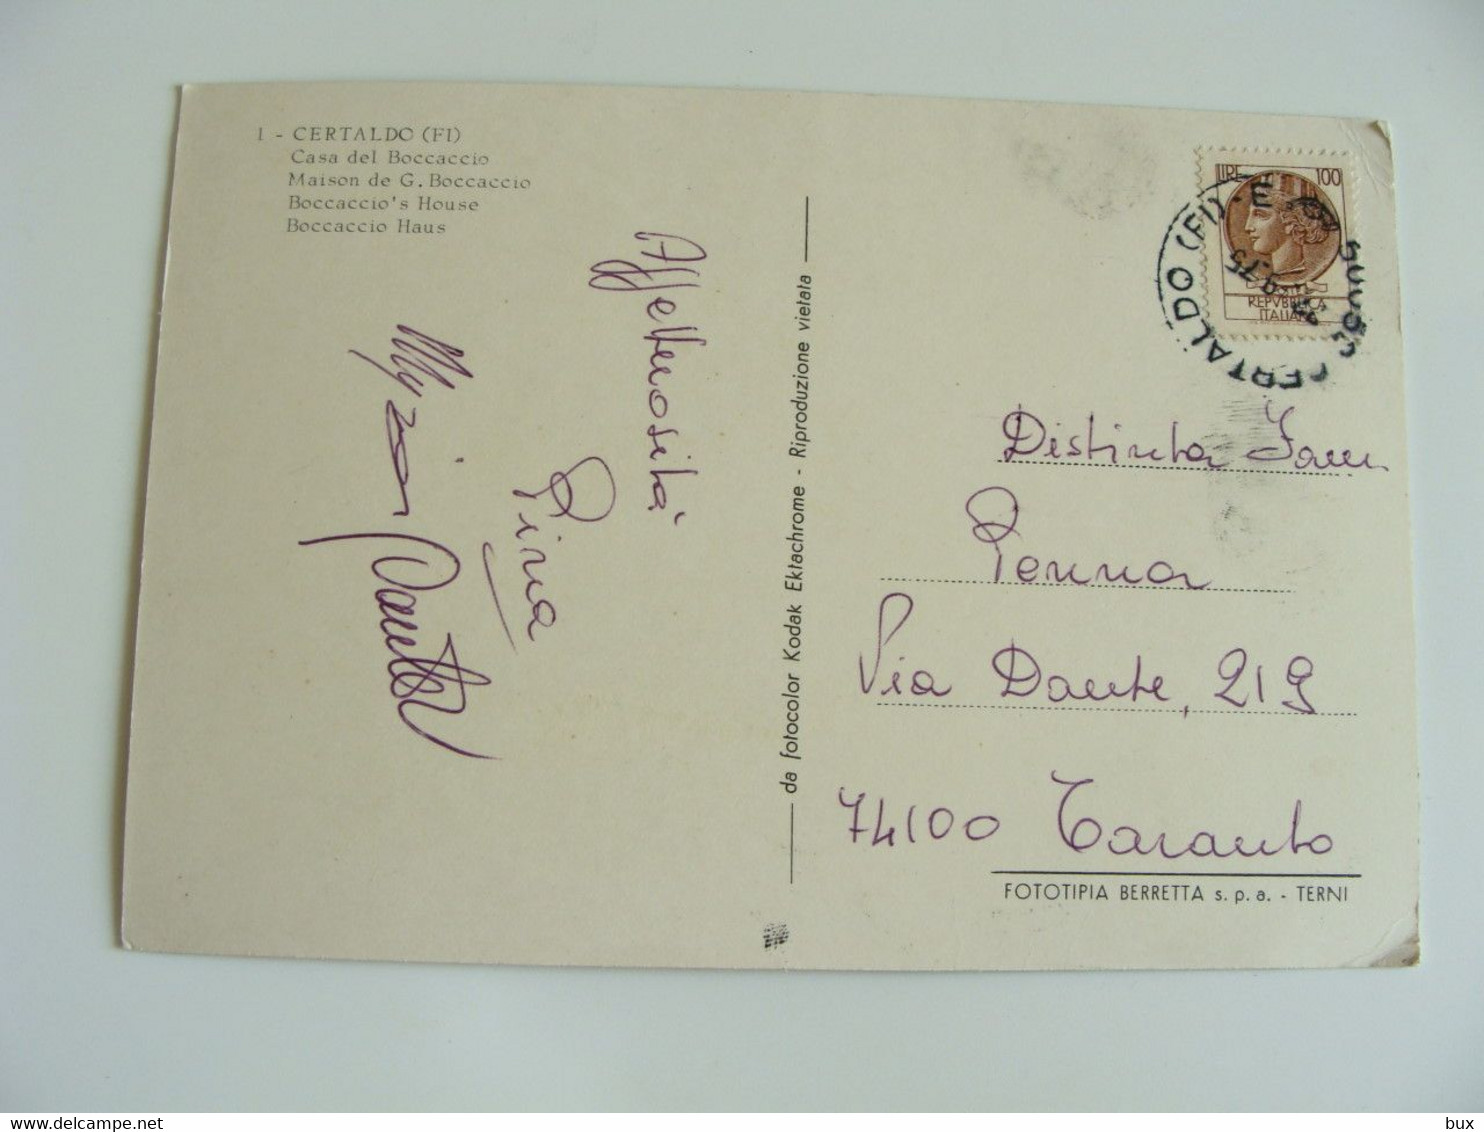 1 - CERTALDO (FI)
Casa del Boccaccio
Maison de G. Boccaccio
Boccaccio's House
Boccaccio Haus
Affettuosità
Pina
da fotocolor Kodak Ektachrome - Riproduzione vietata
LIRE 100
REPVBBLICA
ITALIANA
CERTALDO (FI) - E
Distinta Fam
Penna
Via Dante, 219
74100 Taranto
FOTOTIPIA BERRETTA s.p.a. - TERNI
delcampe.net
bux